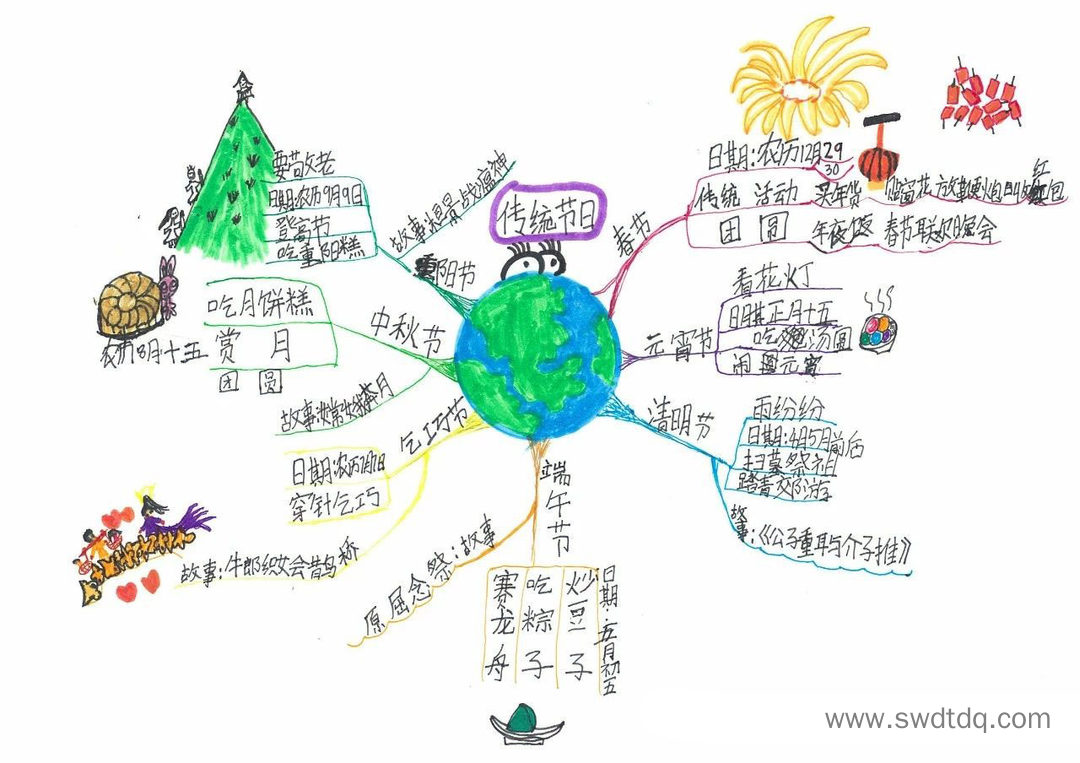 传统节日
春节
日期:农历12月29
30
传统 活动 买年货 贴窗花 放鞭炮 红包
团 圆 年夜饭 春节联欢晚会
元宵节
看花灯
日期正月十五
吃 汤圆
闹 元宵
清明节
雨纷纷
日期:4月5月前后
扫墓祭祖
踏青郊游
故事:《公子重耳与介子推》
端午节
日期:五月初五
炒豆子
吃粽子
赛龙舟
故事:祭念屈原
乞巧节
日期:农历7月7日
穿针乞巧
故事:牛郎织女会鹊桥
中秋节
吃月饼糕
赏 月
团 圆
农历8月十五
故事:嫦娥奔月
重阳节
要敬老
日期农历9月9日
登高节
吃重阳糕
故事:恒景战瘟神
www.swdtdq.com